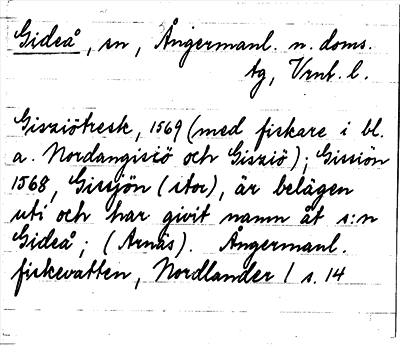 Gideå, sn, Ångermanl. n. doms.
tg, Vrnl. l.
Gisziötresk, 1569 (med fiskare i bl.
a. Nordangisiö och Gisziö); Gissiön
1568, Gissjön (stor), är belägen
uti och har givit namn åt s:n
Gideå; (Arnäs). Ångermanl.
fiskevatten, Nordlander 1 s. 14